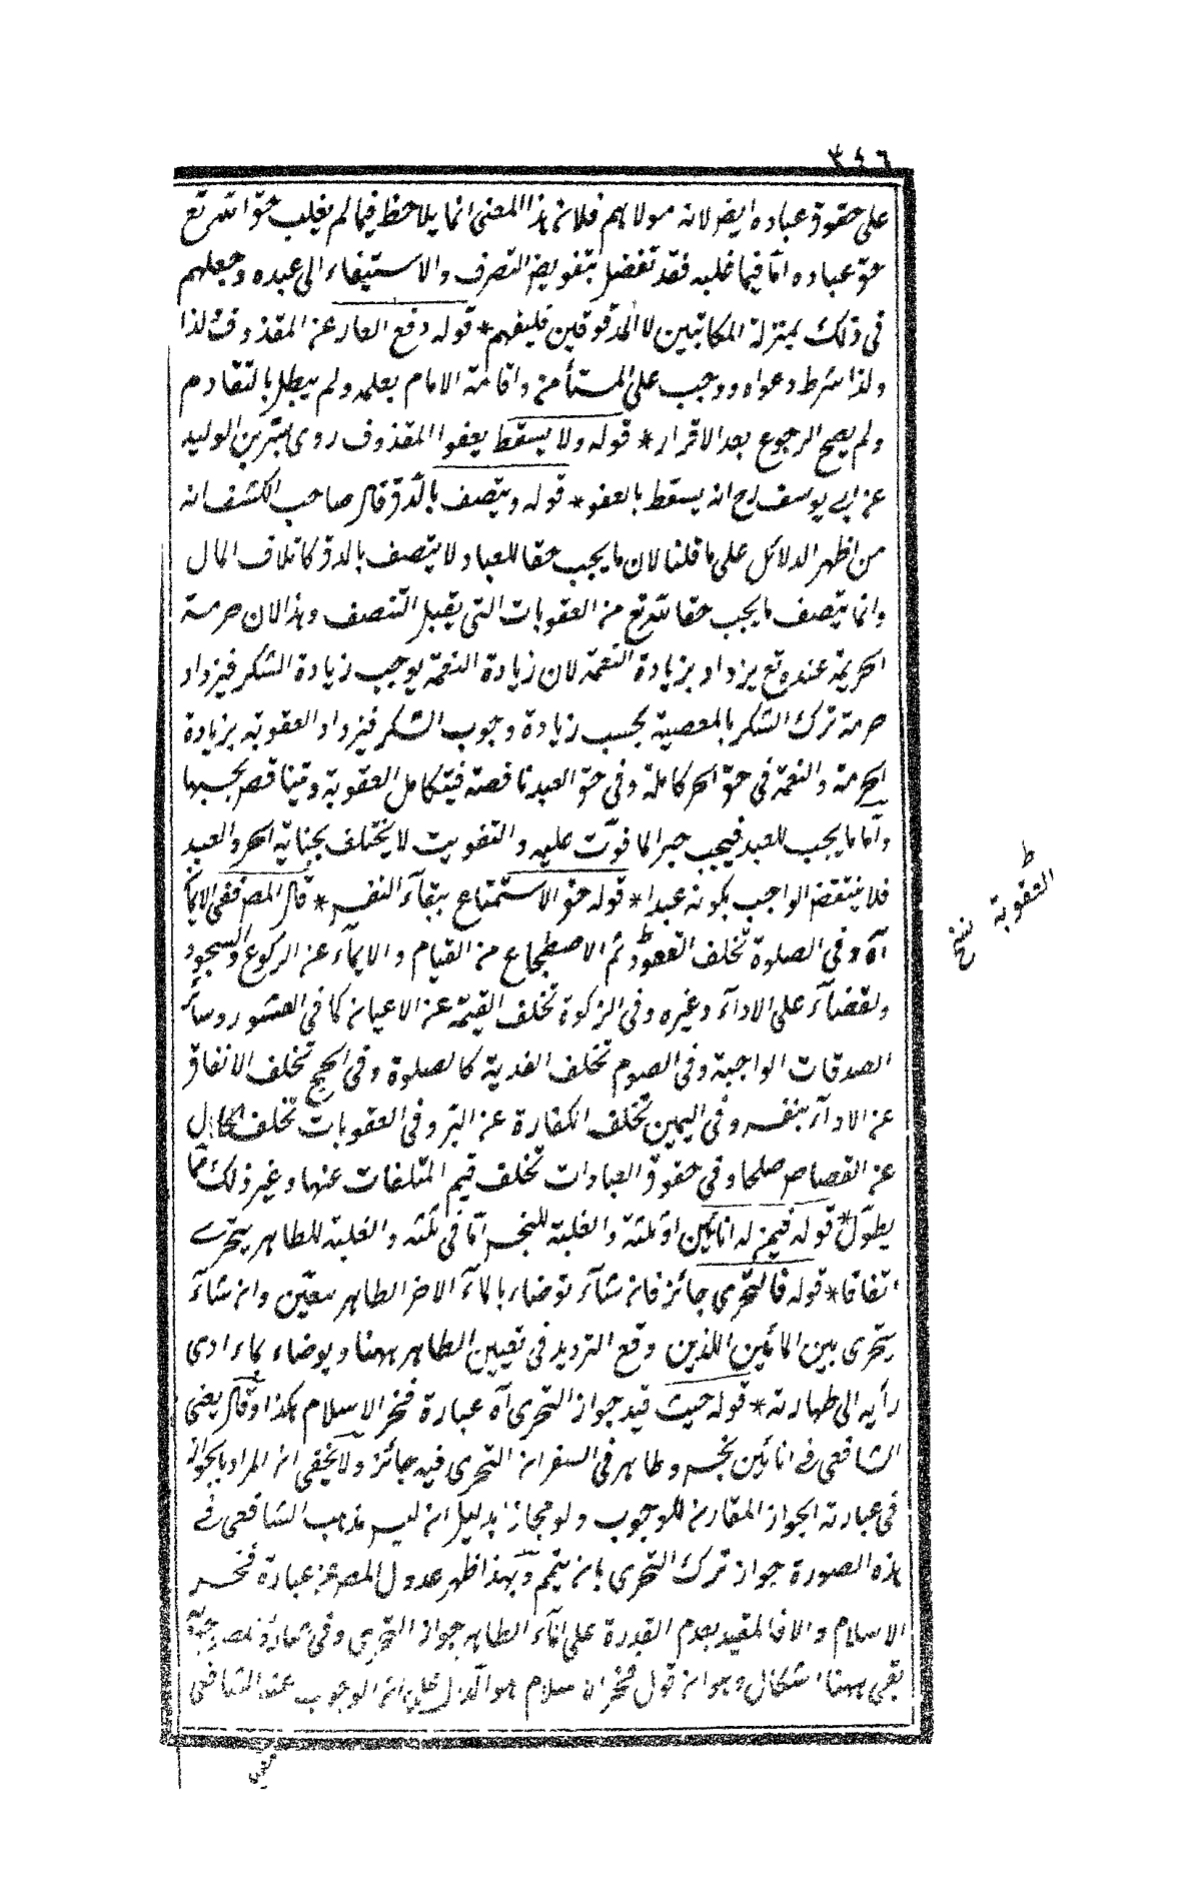 ٣٤٦
على حقوق عباده ايضا لانه مولاهم فلان هذا المعنى انما يلاحظ فيما لم يغلب حق الله تع
حق عباده اما فيما غلبه فقد تفضل بتفويض التصرف والاستيفاء الى عبده وجعلهم
فى ذلك بمنزلة المكاتبين لا المدقوقين فليفهم * قوله دفع العار عن المقذوف لذا
ولذا شرط دعواه ووجب على المستأمن واقامة الامام بعلمه ولم يبطل بالتقادم
ولم يصح الرجوع بعد الاقرار * قوله ولا يسقط بعفو المقذوف روى بشر بن الوليد
عن ابى يوسف رح انه يسقط بالعفو * قوله ويتصف بالرق قال صاحب الكشف انه
من اظهر الدلائل على ما قلنا لان ما يجب حقا للعباد لا يتصف بالرق كاتلاف المال
وانما يتصف ما يجب حقا لله تع من العقوبات التى يقبل التنصف وهذا لان حرمة
الجريمة عنده تع يزداد بزيادة النعمة لان زيادة النعمة يوجب زيادة الشكر فيزداد
حرمة ترك الشكر بالمعصية بحسب زيادة وجوب الشكر فيزداد العقوبة بزيادة
الحرمة والنعمة فى حق الحر كاملة وفى حق العبد ناقصة فيتكامل العقوبة ويتناقص بحسبها
واما ما يجب للعبد فيجب جبرا لما فوت عليه والتفويت لا يختلف بجناية الحر والعبد
فلا ينتقض الواجب بكونه عبدا * قوله حق الاستمتاع ببقاء النفس * قال المص ففى الايمان
آه وفى الصلوة تخلف القعود ثم الاضطجاع من القيام والايماء عن الركوع والسجود
ولقضاء على الاداء وغيره وفى الزكوة تخلف القيمة عن الاعيان كما فى العشور وسائر
الصدقات الواجبة وفى الصوم تخلف الفدية كالصلوة وفى الحج تخلف الانفاق
عن الاداء بنفسه وفى اليمين تخلف الكفارة عن البر وفى العقوبات تخلف المال
عن القصاص صلحا وفى حقوق العبادات تخلف قيم المتلفات عنها وغير ذلك مما
يطول * قوله فيمن له اناءين او ثلثة والغلبة للنجس اما فى ثلثه والغلبة للطاهر يتحرى
اتفاقا * قوله فالتحرى جائز فان شاء توضاء بالماء الاخر الطاهر بيقين وان شاء
يتحرى بين المائين اللذين وقع الترديد فى تعيين الطاهر ههنا ويوضاء بما ادى
رأيه الى طهارته * قوله حيث قيد جواز التحرى آه عبارة فخر الاسلام هكذا وقال يعنى
الشافعى فى انائين نجس وطاهر فى السفر ان التحرى فيه جائز ولا يخفى ان المراد بالجواز
فى عبارته الجواز المقارن للوجوب ولو مجازا بدليل ان ليس مذهب الشافعى فى
هذه الصورة جواز ترك التحرى بان يتيمم وبهذا ظهر عدول المص عن عبارة فخر
الاسلام والا فالمقيد بعدم القدرة على الماء الطاهر جواز التحرى وفى
بقى ههنا اشكال وهو ان قول فخر الاسلام هو الدال على ان الوجوب عند الشافعى
العقوبة نسخ